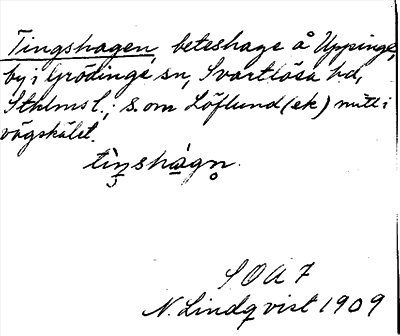 Tingshagen, beteshage å Uppinge,
by i Grödinge sn, Svartlösa hd,
Sthlms l.; s. om Löflund (ek) mitt i
vägskälet.
tìn̥shágn̥.
S O A 7
N. Lindqvist 1909